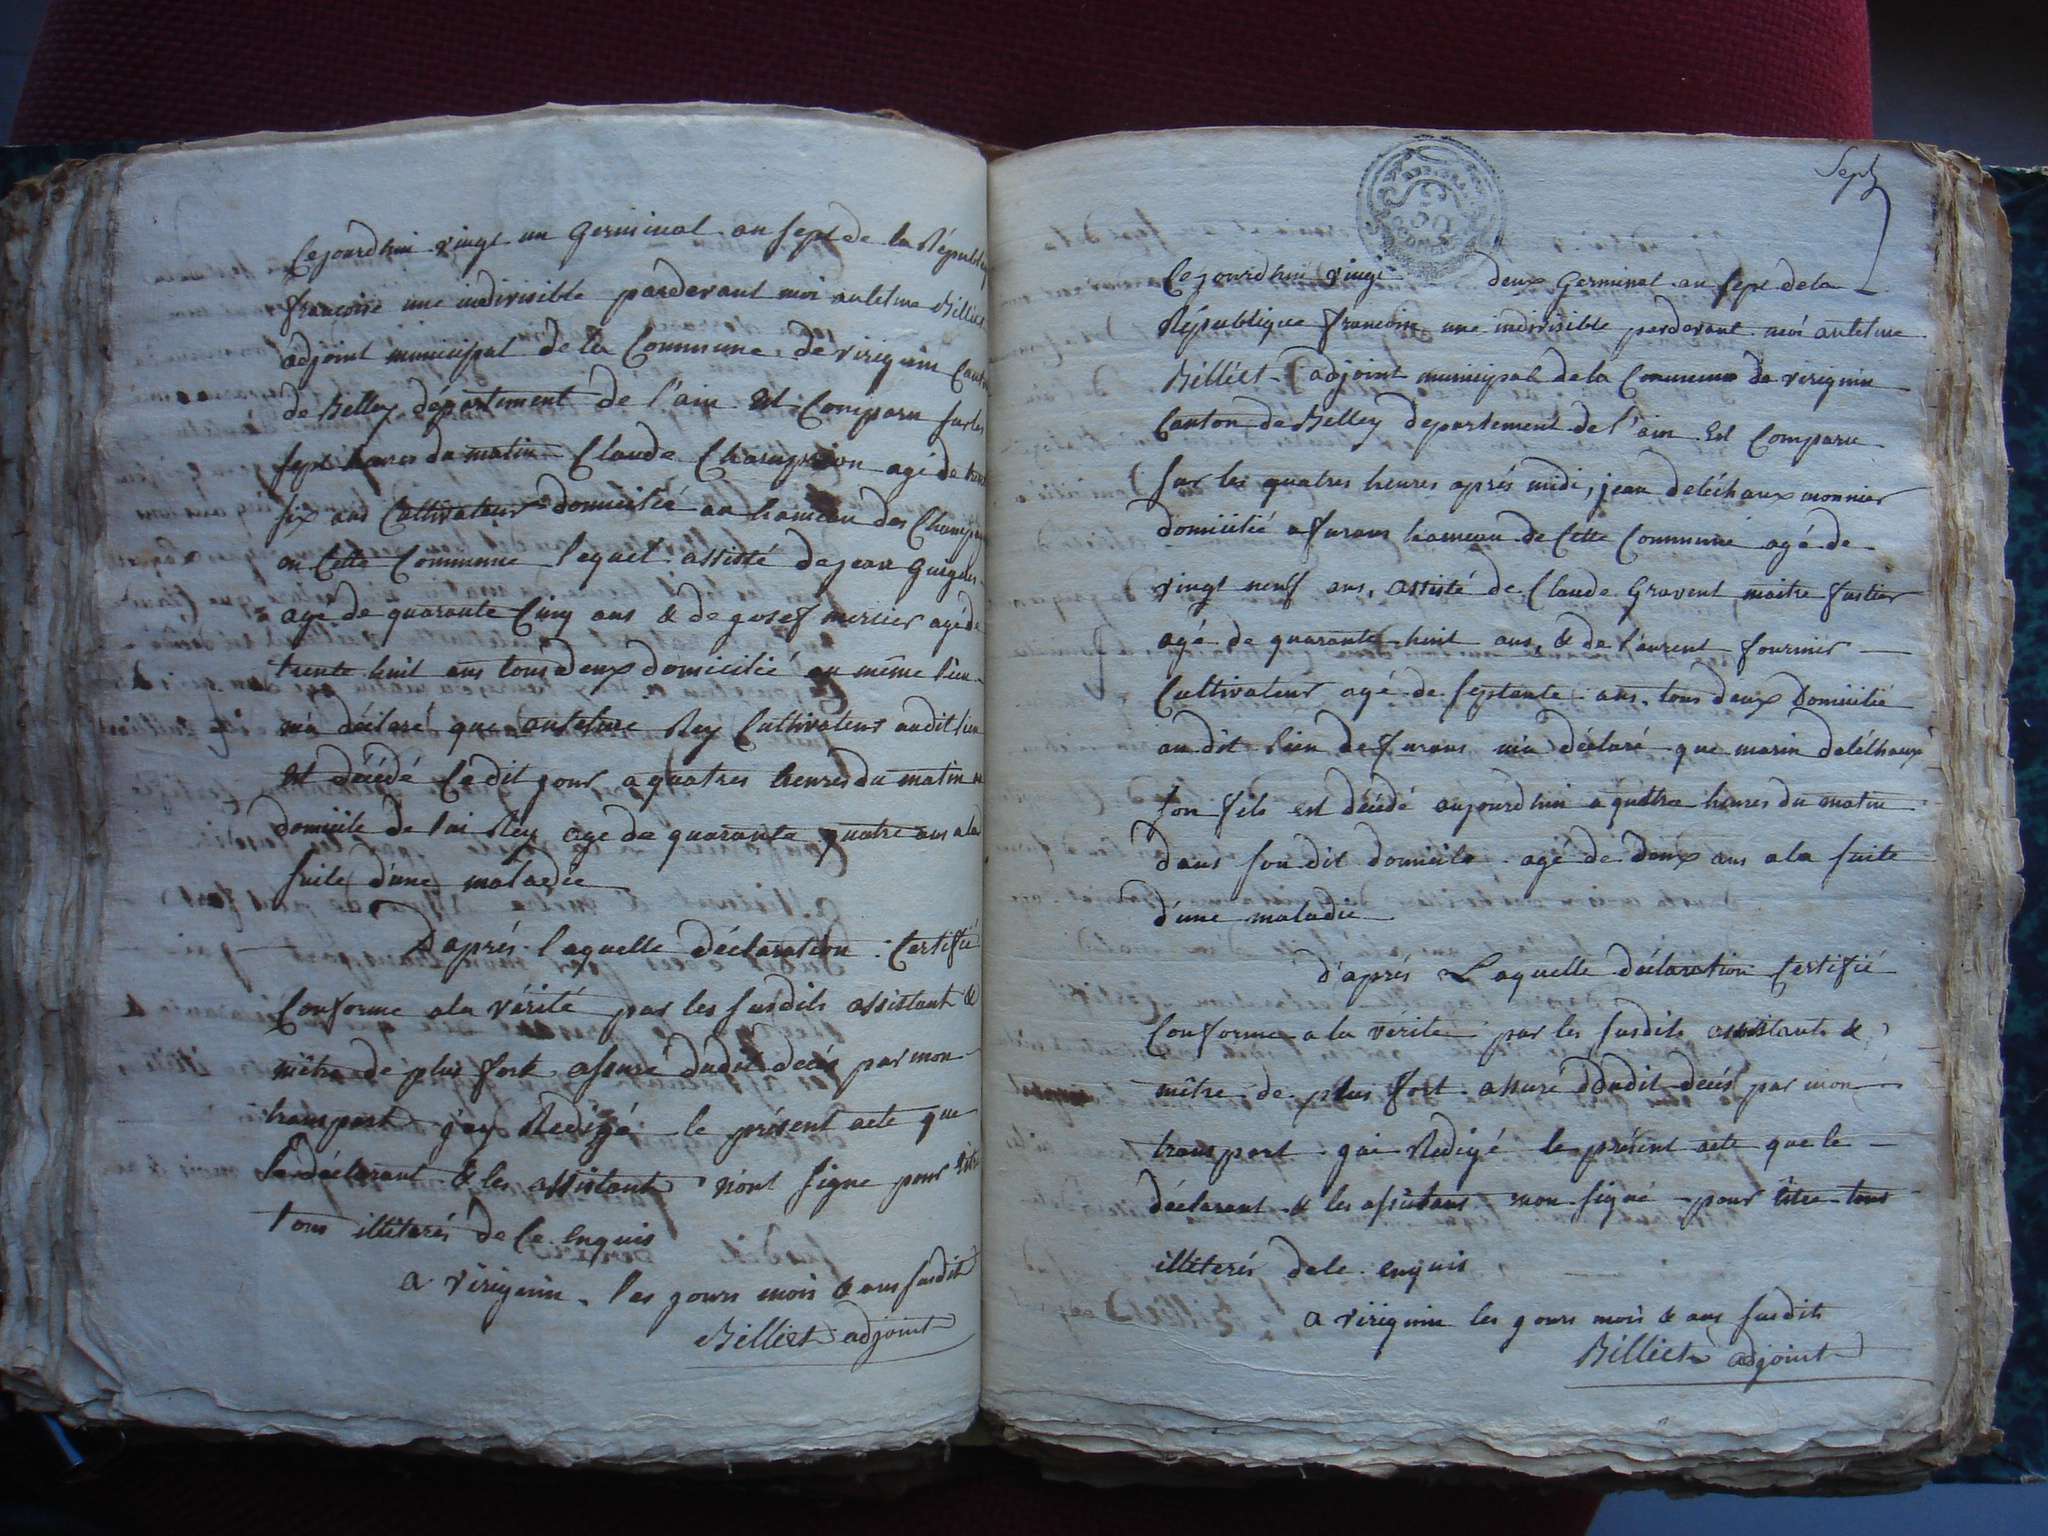 Cejourdhui vingt un Germinal an sept de la Républiq
francoise une indivisible pardevant moi antelme Billiet
adjoint municipal de la Commune de virignin Canton
de Belley département de l'ain Est Comparu sur les
sept heures du matin Claude Champion agé de trente
six ans Cultivateur domicilié au hameau des Champ
en Cette Commune lequel assisté de jean
agé de quarante Cinq ans & de josef mercier agé de
trente huit ans tous deux domicilié au même lieu
m'a déclaré que antelme Rey Cultivateur audit lieu
Est décédé Cedit jour a quatres heures du matin au
domicile de lui Rey age de quarante quatre ans a la
suite d'une maladie
D'aprés laquelle déclaration Certifié
Conforme a la vérité par les susdits assistant &
mêtre de plus fort assuré dudit decés par mon
transport j'ay Redigé le présent acte que
le déclarant & les assistant n'ont signe pour être
tous illiterés de Ce Enquis
a virignin les jours mois & ans susdit
Billiet adjoint
Sept
Cejourdhui vingt deux Germinal an sept de la
République francoise une indivisible pardevant moi antelme
Billiet adjoint municipal de la Commune de virignin
Canton de Belley departement de l'ain Est Comparu
sur les quatres heures aprés midi, jean deléchaux monnier
domicilié a furans hameau de Cette Commune agé de
vingt neuf ans, assisté de Claude Gravent maitre fustier
agé de quarante huit ans, & de l'aurent fournier
Cultivateur agé de septante ans, tous deux Domicilié
au dit lieu de furans m'a déclaré que marin deléchaux
son fils est décédé aujourdhui a quattre heures du matin
dans son dit domicile agé de deux ans a la suite
d'une maladie
d'aprés Laquelle déclaration Certifié
Conforme a la vérité par les susdits assistants &
mêtre de plus fort assuré dudit decés par mon
transport jai Redigé le présent acte que le
déclarant & les assistans n'ont signé pour être tous
illiterés de le enquis
a virignin les jours mois & ans susdits
Billiet adjoint